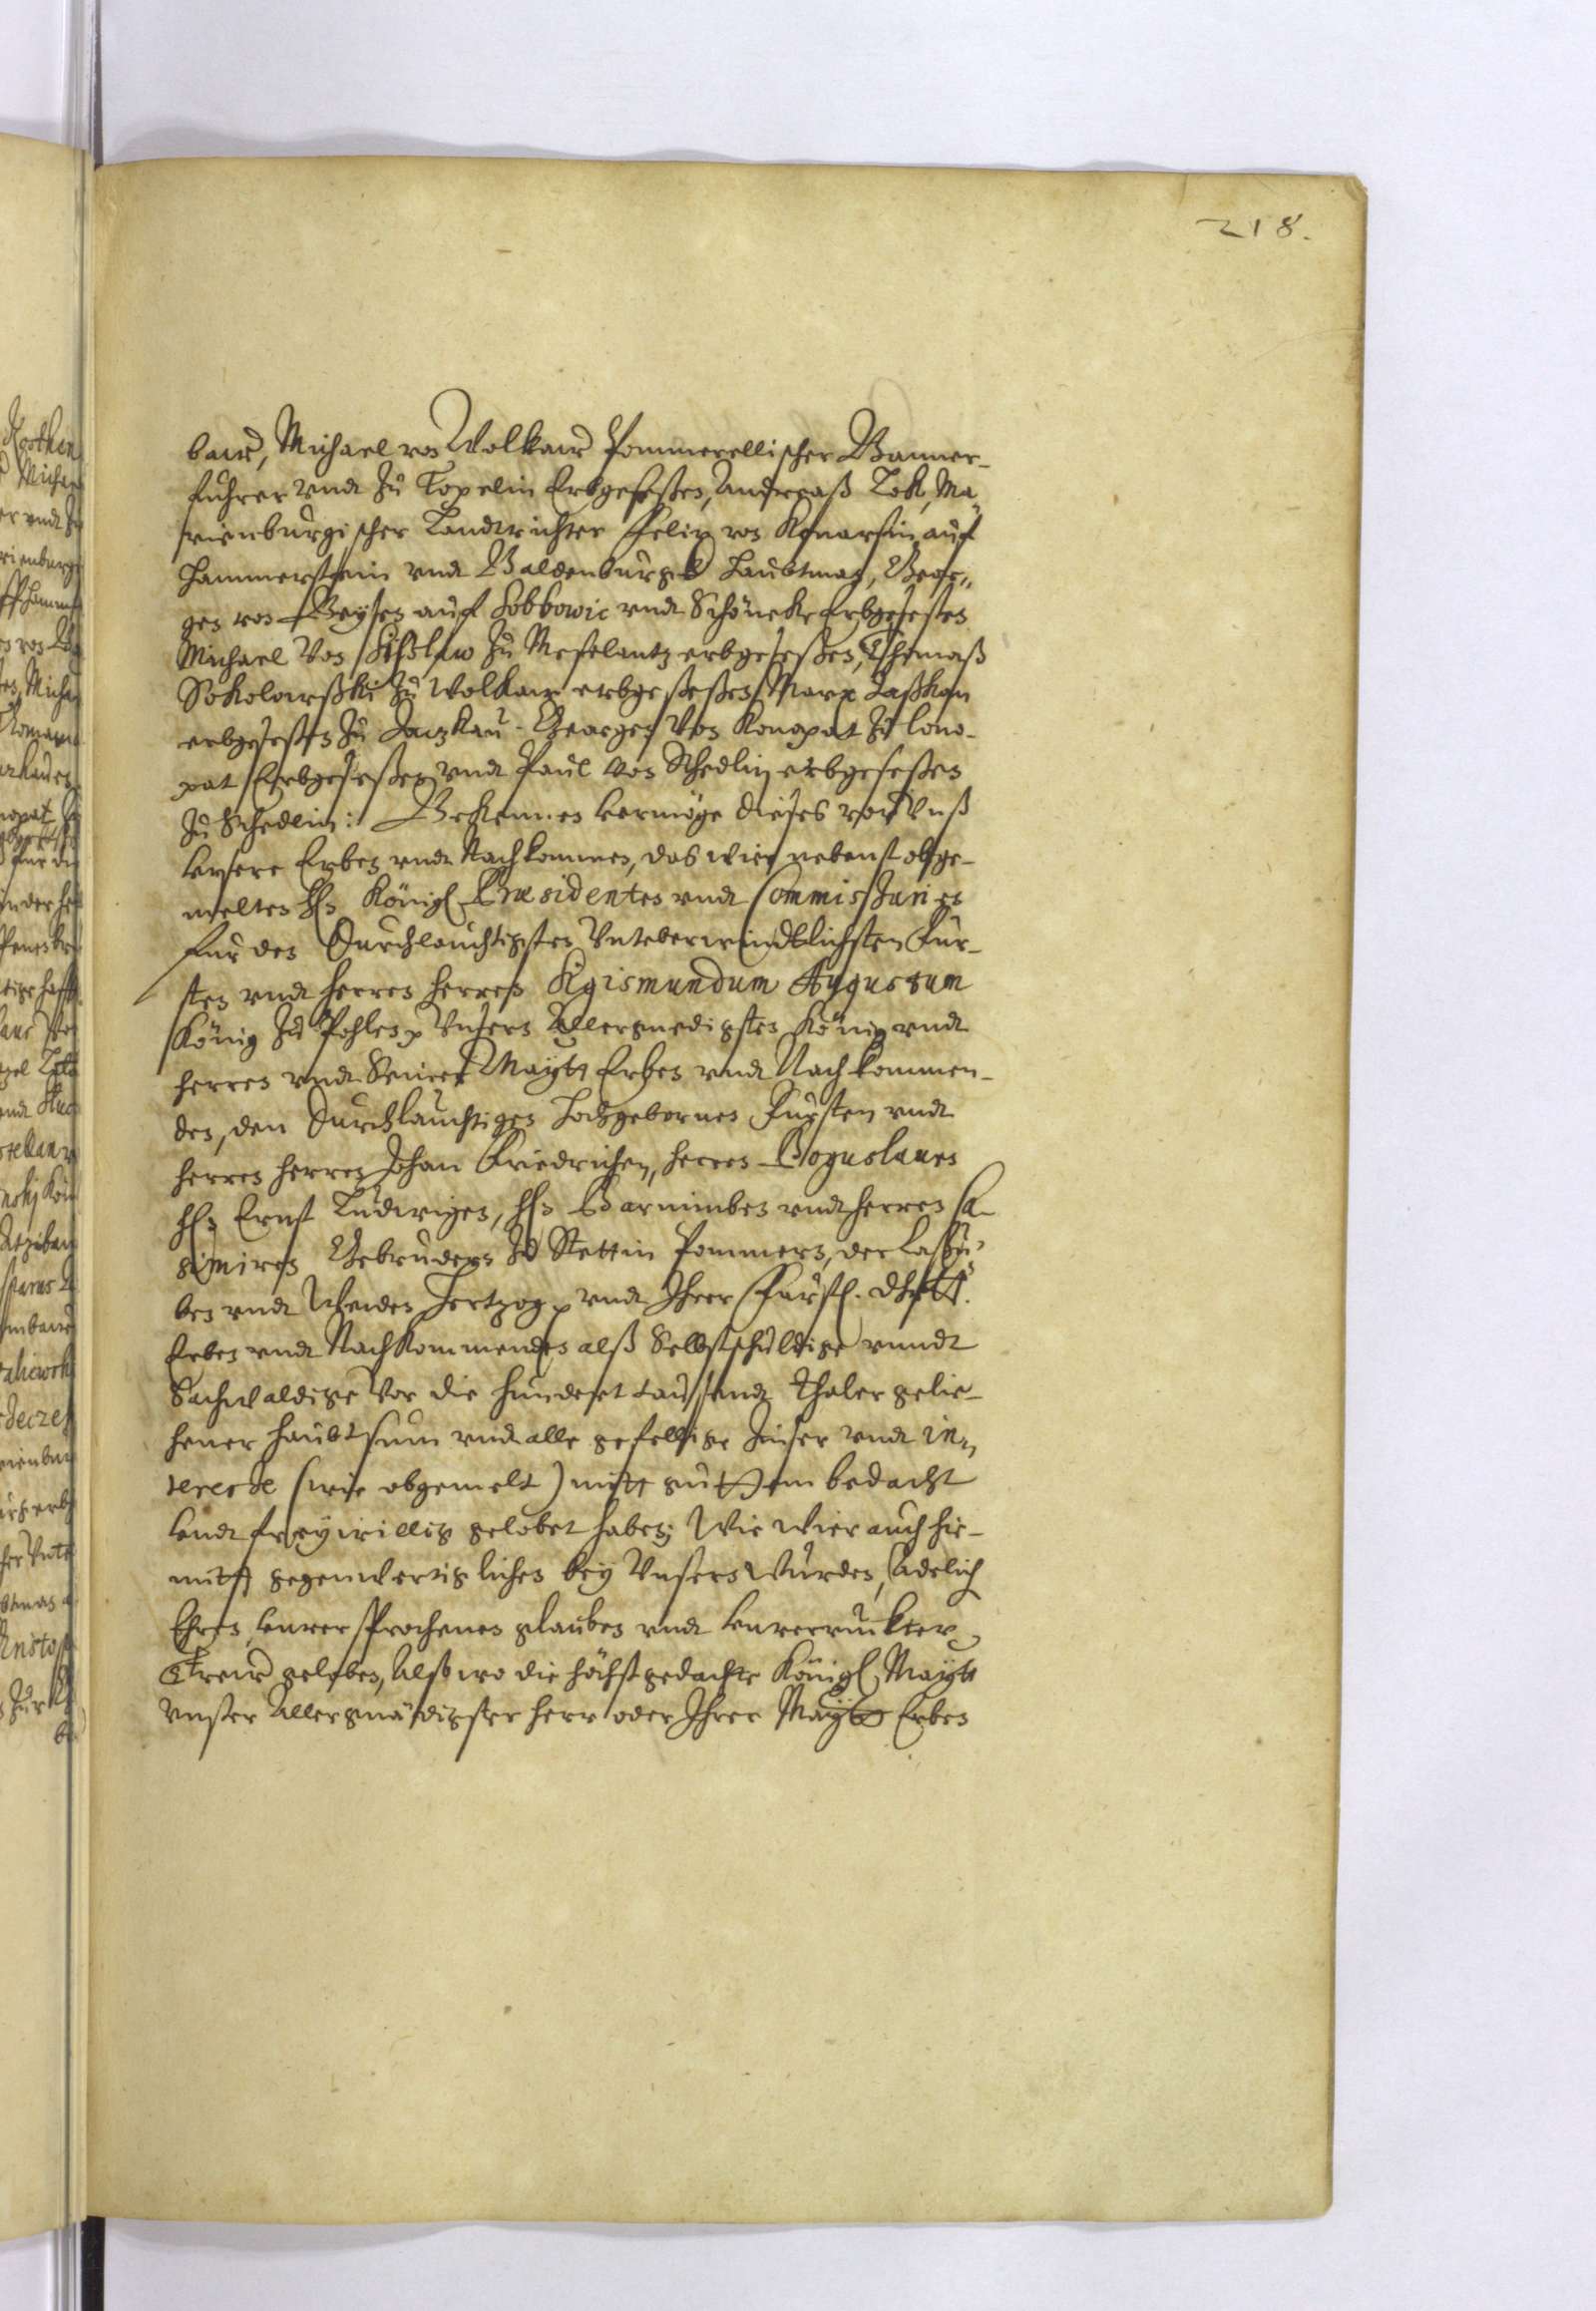 218.
baw, Michael von Wolkaw Pommerellischer Banner-
fuhrer vndt zu Topelin Erbgesessen, Andreaß Lok, Ma-
rienburgischer Landtrichter Felix von Konarsin auf
Hammerstein vndt Baldenburgk Haubtman, Geor-
gen von Beysen auf Sobbowic vndt Schöneck Erbgesessen
Michael von zu Meselantz erbgesessen, Thomaß
Sokolowßki zu Wolkaw erbgesessen Marx Jaßkan
erbgesessen zu Janzkau Georgen von Konopat zu Cono-
pat Erbgesessen vndt Paul von Schedlin erbgesessen
zu Schedlin: Bekennen kermöge dieses vor Vnß
Vnsere Erben vndt Nachkommen, das wier nebenst obge-
melten Hn Königl Præsidenten vndt Commissarien
fur den Durchlauchtigsten Vnteberwindtlichsten Fur-
sten vndt Herren Herren Sigismundum Augustum
König zu Pohlen Vnsern Allergnedigsten König vndt
Herren vndt Seiner Maytt Erben vndt Nachkommen-
den, den Durchlauchtigen Hochgebornen Fursten vndt
Herren Herren Johan Friedrichen, Herren Boguslauen
Hn Ernst Ludwigen, Hn Barnimben vndt Herren Ca-
simiren Gebrudern zu Stettin Pommern, der Cassu-
ben vndt Wenden Hertzog vndt Ihrer Fürstl.
Erben vndt Nachkommenden alß Selbstschuldige vnndt
Sachwaldige Vor die hundert taussendt Thaler gelie-
hener Haubtsum vnd alle gefellige Zinser vndt in-
terește (wie obgemelt) mitt guttem bedacht
Vndt freywillig gelobet haben; Wie wier auch hie-
mitt gegenwertiglichen bey Vnsern Wurden, Adelich
Ehren, vnverSprochenen glauben vndt vnverruckter
Trew geloben, Alßwo die höchstgedachte Königl Maytt
vnser Allergnädigster Herr oder Ihrer Maytt Erben